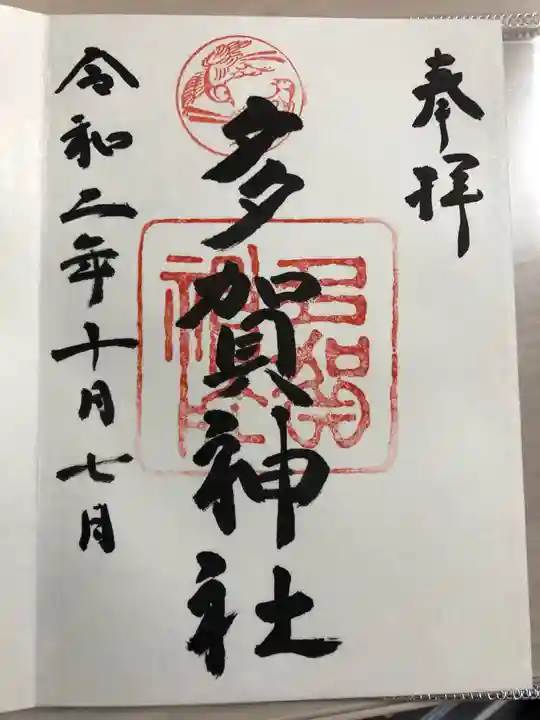 奉拝
多賀神社
令和二年十月七日